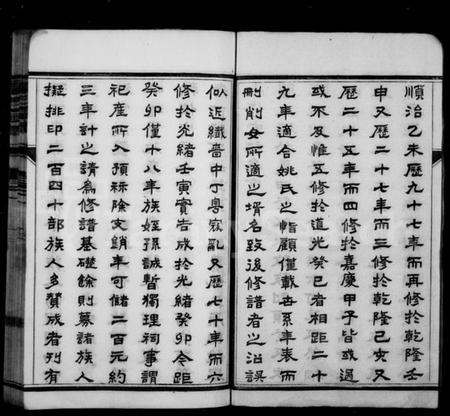 順治乙未歷九十七年而再修於乾隆壬
申又歷二十七年而三修於乾隆己亥又
歷二十五年而四修於嘉慶甲子皆或過
或不及惟五修於道光癸巳者相距二十
九年適合姚氏之惜顧僅載世系年表而
刪削女所適之壻名致後修譜者之沿誤
似近纎嗇中丁粵寇亂又歷七十年而六
修於光緒壬寅實告成於光緒癸卯今距
癸卯僅十八年族姪孫誠暫獨理祠事謂
祀產所入預祘除支銷年可儲二百元約
三年計之請為修譜基礎餘則募諸族人
擬排印二百四十部族人多贊成者列有